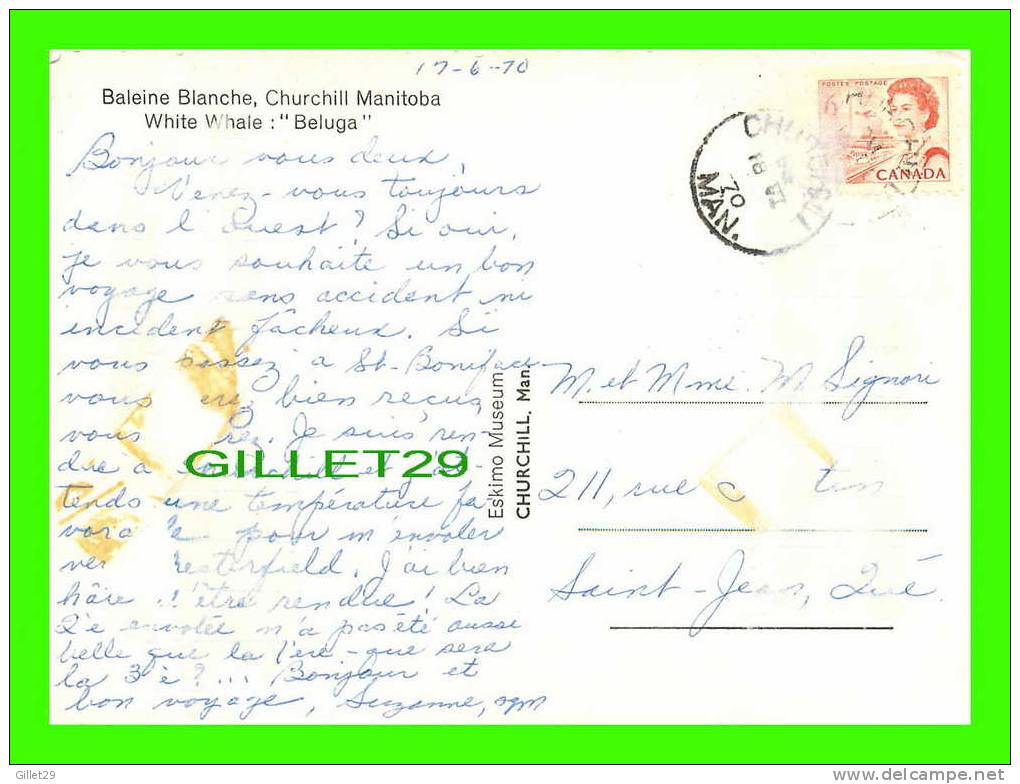 17-6-70
Baleine Blanche, Churchill Manitoba
White Whale : "Beluga"
Bonjour vous deux,
Venez-vous toujours
dans l'Ouest? Si oui,
je vous souhaite un bon
voyage sans accident ni
incident fâcheux. Si
vous passez à St-Boniface
vous bien reçus
vous rez. Je suis ren-
due à et j'at-
tends une température fa
vora le pour m'envoler
ver esterfield. J'ai bien
hâte d'être rendue! La
2e envolée n'a pas été aussi
belle que la 1ère - que sera
la 3è?... Bonjour et
bon voyage, Suzanne, sgm
GILLET29
Eskimo Museum
CHURCHILL, Man.
POSTES POSTAGE
6
CANADA
CHURCHILL
18
70
MAN.
M. et Mme. M Signori
211, rue
Saint-Jean, Qué.
Gillet29
http://www.delcampe.net